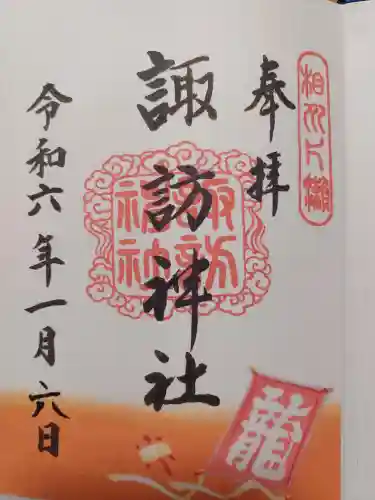 奉拝
諏訪神社
令和六年一月六日
諏訪神社
龍